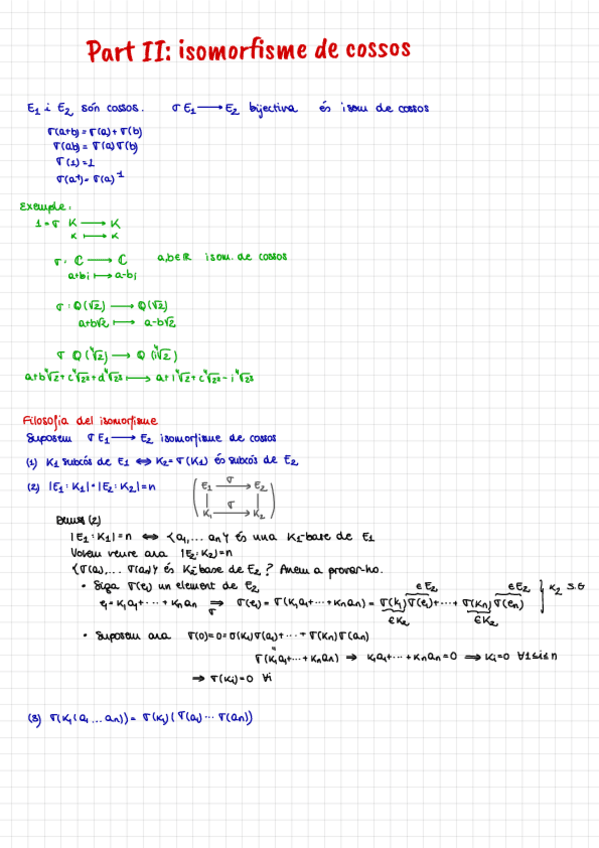 Part II: isomorfisme de cossos
E₁ i E₂ són cossos. σ E₁ ⟶ E₂ bijectiva és isom de cossos
σ(a+b) = σ(a) + σ(b)
σ(ab) = σ(a) σ(b)
σ(1) = 1
σ(a⁻¹) = σ(a)⁻¹
Exemple:
1 = σ K ⟶ K
x ⟼ x
σ: ℂ ⟶ ℂ a,b∈ℝ isom. de cossos
a+bi ⟼ a-bi
σ: ℚ(√2) ⟶ ℚ(√2)
a+b√2 ⟼ a-b√2
σ ℚ(⁴√2) ⟶ ℚ(i⁴√2)
a+b⁴√2 + c⁴√2² + d⁴√2³ ⟼ a+i⁴√2 + c⁴√2² - i⁴√2³
Filosofia del isomorfisme
Suposem σ E₁ ⟶ E₂ isomorfisme de cossos
(1) K₁ subcòs de E₁ ⟺ K₂ = σ(K₁) és subcòs de E₂
(2) |E₁:K₁| = |E₂:K₂| = n
E₁ σ⟶ E₂
K₁ σ⟶ K₂
Demos (2)
|E₁:K₁| = n ⟺ {a₁,... an} és una K₁-base de E₁
Volem veure ara |E₂:K₂| = n
{σ(a₁),... σ(an)} és K₂-base de E₂? Anem a provar-ho.
• Siga σ(e₁) un element de E₂ ∈E₂ ∈E₂
e₁ = K₁a₁+···+Knan ⟹σ σ(e₁) = σ(K₁a₁+···+Knan) = σ(K₁)σ(e₁)+···+σ(Kn)σ(en) } K₂ S.G
∈K₂ ∈K₂
• Suposem ara σ(0)=0=σ(K₁)σ(a₁)+···+σ(Kn)σ(an)
σ(K₁a₁+···+Knan) ⟹ K₁a₁+···+Knan=0 ⟹ Ki=0 ∀1≤i≤n
⟹ σ(Ki)=0 ∀i
(3) σ(K₁(a₁...an)) = σ(K₁)(σ(a₁)···σ(an))